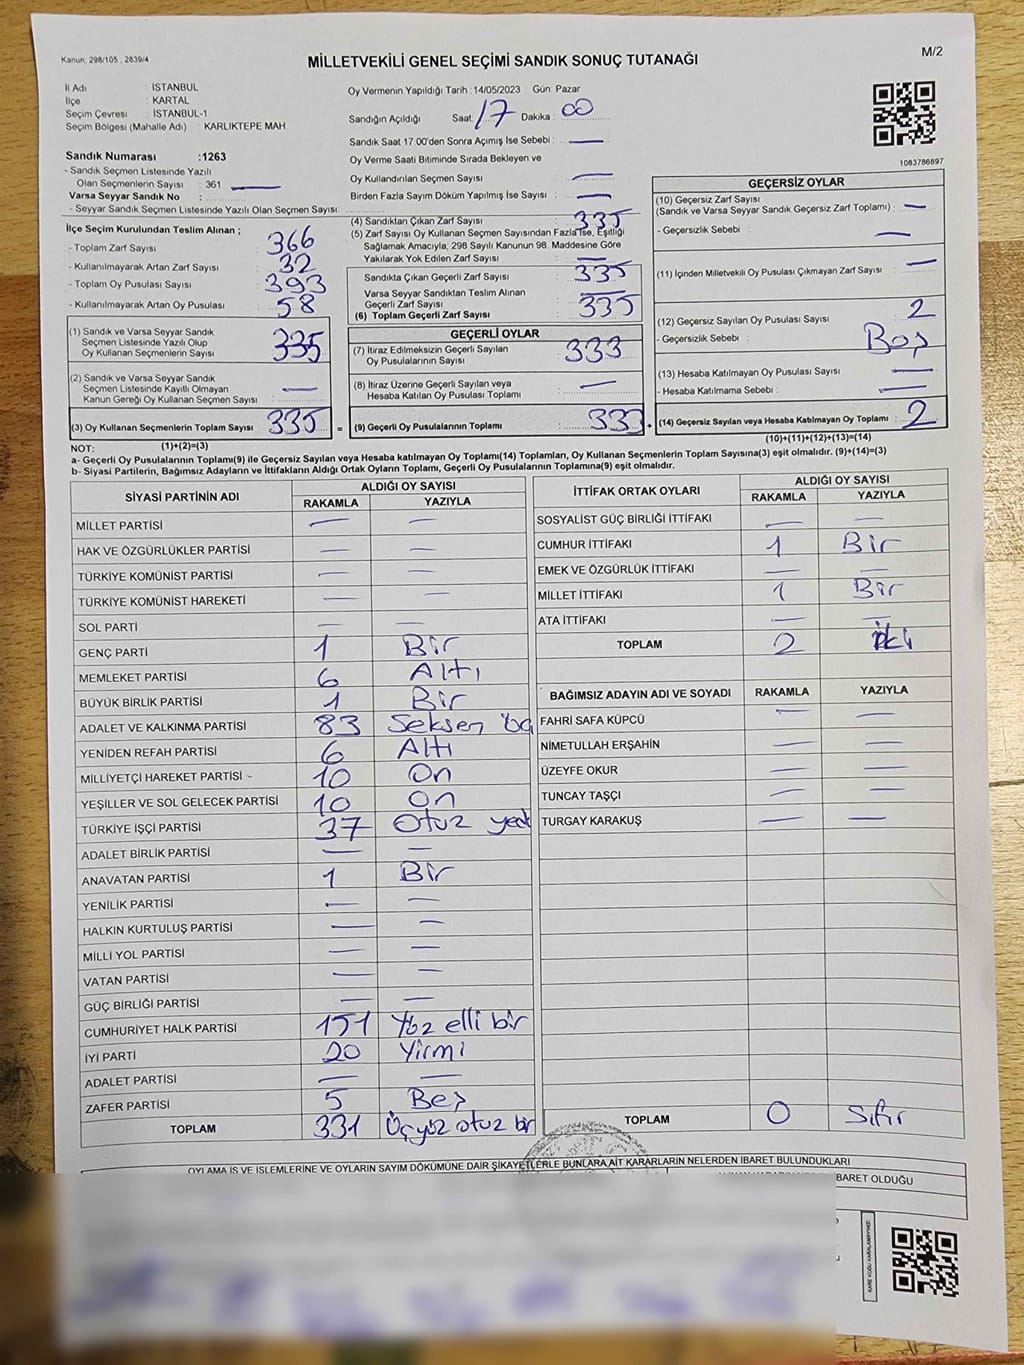 Kanun; 298/105 , 2839/4
MİLLETVEKİLİ GENEL SEÇİMİ SANDIK SONUÇ TUTANAĞI
M/2
İl Adı : İSTANBUL
İlçe : KARTAL
Seçim Çevresi : İSTANBUL-1
Seçim Bölgesi (Mahalle Adı) : KARLIKTEPE MAH.
Sandık Numarası :1263
- Sandık Seçmen Listesinde Yazılı
Olan Seçmenlerin Sayısı : 361 —
Varsa Seyyar Sandık No :
- Seyyar Sandık Seçmen Listesinde Yazılı Olan Seçmen Sayısı:
Oy Vermenin Yapıldığı Tarih :14/05/2023 Gün: Pazar
Sandığın Açıldığı Saat: 17 Dakika : 00
Sandık Saat 17:00'den Sonra Açımış İse Sebebi : —
Oy Verme Saati Bitiminde Sırada Bekleyen ve
Oy Kullandırılan Seçmen Sayısı : —
Birden Fazla Sayım Döküm Yapılmış İse Sayısı : —
1083786897
İlçe Seçim Kurulundan Teslim Alınan ;
- Toplam Zarf Sayısı : 366
- Kullanılmayarak Artan Zarf Sayısı : 32
- Toplam Oy Pusulası Sayısı : 393
- Kullanılmayarak Artan Oy Pusulası : 58
(1) Sandık ve Varsa Seyyar Sandık
Seçmen Listesinde Yazılı Olup
Oy Kullanan Seçmenlerin Sayısı : 335
(2) Sandık ve Varsa Seyyar Sandık
Seçmen Listesinde Kayıtlı Olmayan
Kanun Gereği Oy Kullanan Seçmen Sayısı : —
(3) Oy Kullanan Seçmenlerin Toplam Sayısı : 335 =
(1)+(2)=(3)
(4) Sandıktan Çıkan Zarf Sayısı : 335
(5) Zarf Sayısı Oy Kullanan Seçmen Sayısından Fazla İse, Eşitliği
Sağlamak Amacıyla, 298 Sayılı Kanunun 98. Maddesine Göre
Yakılarak Yok Edilen Zarf Sayısı : —
Sandıkta Çıkan Geçerli Zarf Sayısı : 335
Varsa Seyyar Sandıktan Teslim Alınan
Geçerli Zarf Sayısı : —
(6) Toplam Geçerli Zarf Sayısı : 335
GEÇERLİ OYLAR
(7) İtiraz Edilmeksizin Geçerli Sayılan
Oy Pusulalarının Sayısı : 333
(8) İtiraz Üzerine Geçerli Sayılan veya
Hesaba Katılan Oy Pusulası Toplamı : —
(9) Geçerli Oy Pusulalarının Toplamı : 333 +
GEÇERSİZ OYLAR
(10) Geçersiz Zarf Sayısı
(Sandık ve Varsa Seyyar Sandık Geçersiz Zarf Toplamı) : —
- Geçersizlik Sebebi : —
(11) İçinden Milletvekili Oy Pusulası Çıkmayan Zarf Sayısı : —
(12) Geçersiz Sayılan Oy Pusulası Sayısı : 2
- Geçersizlik Sebebi : Boş
(13) Hesaba Katılmayan Oy Pusulası Sayısı : —
- Hesaba Katılmama Sebebi : —
(14) Geçersiz Sayılan veya Hesaba Katılmayan Oy Toplamı : 2
(10)+(11)+(12)+(13)=(14)
NOT:
a- Geçerli Oy Pusulasının Toplamı(9) ile Geçersiz Sayılan veya Hesaba katılmayan Oy Toplamı(14) Toplamları, Oy Kullanan Seçmenlerin Toplam Sayısına(3) eşit olmalıdır. (9)+(14)=(3)
b- Siyasi Partilerin, Bağımsız Adayların ve İttifakların Aldığı Ortak Oyların Toplamı, Geçerli Oy Pusulasının Toplamına(9) eşit olmalıdır.
SİYASİ PARTİNİN ADI ALDIĞI OY SAYISI
RAKAMLA YAZIYLA
MİLLET PARTİSİ — —
HAK VE ÖZGÜRLÜKLER PARTİSİ — —
TÜRKİYE KOMÜNİST PARTİSİ — —
TÜRKİYE KOMÜNİST HAREKETİ — —
SOL PARTİ — —
GENÇ PARTİ 1 Bir
MEMLEKET PARTİSİ 6 Altı
BÜYÜK BİRLİK PARTİSİ 1 Bir
ADALET VE KALKINMA PARTİSİ 83 Seksen
YENİDEN REFAH PARTİSİ 6 Altı
MİLLİYETÇİ HAREKET PARTİSİ 10 On
YEŞİLLER VE SOL GELECEK PARTİSİ 10 On
TÜRKİYE İŞÇİ PARTİSİ 37 Otuz yedi
ADALET BİRLİK PARTİSİ — —
ANAVATAN PARTİSİ 1 Bir
YENİLİK PARTİSİ — —
HALKIN KURTULUŞ PARTİSİ — —
MİLLİ YOL PARTİSİ — —
VATAN PARTİSİ — —
GÜÇ BİRLİĞİ PARTİSİ — —
CUMHURİYET HALK PARTİSİ 151 Yüz elli bir
İYİ PARTİ 20 Yirmi
ADALET PARTİSİ — —
ZAFER PARTİSİ 5 Beş
TOPLAM 331 Üçyüz otuz bir
İTTİFAK ORTAK OYLARI ALDIĞI OY SAYISI
RAKAMLA YAZIYLA
SOSYALİST GÜÇ BİRLİĞİ İTTİFAKI — —
CUMHUR İTTİFAKI 1 Bir
EMEK VE ÖZGÜRLÜK İTTİFAKI — —
MİLLET İTTİFAKI 1 Bir
ATA İTTİFAKI — —
TOPLAM 2 İki
BAĞIMSIZ ADAYIN ADI VE SOYADI RAKAMLA YAZIYLA
FAHRİ SAFA KÜPCÜ — —
NİMETULLAH ERŞAHİN — —
ÜZEYFE OKUR — —
TUNCAY TAŞÇI — —
TURGAY KARAKUŞ — —
TOPLAM 0 Sıfır
OYLAMA İŞ VE İŞLEMLERİNE VE OYLARIN SAYIM DÖKÜMÜNE DAİR ŞİKAYETLERLE BUNLARA AİT KARARLARIN NELERDEN İBARET BULUNDUKLARI
BARET OLDUĞU
KARE KODU KARALAMAYINIZ!